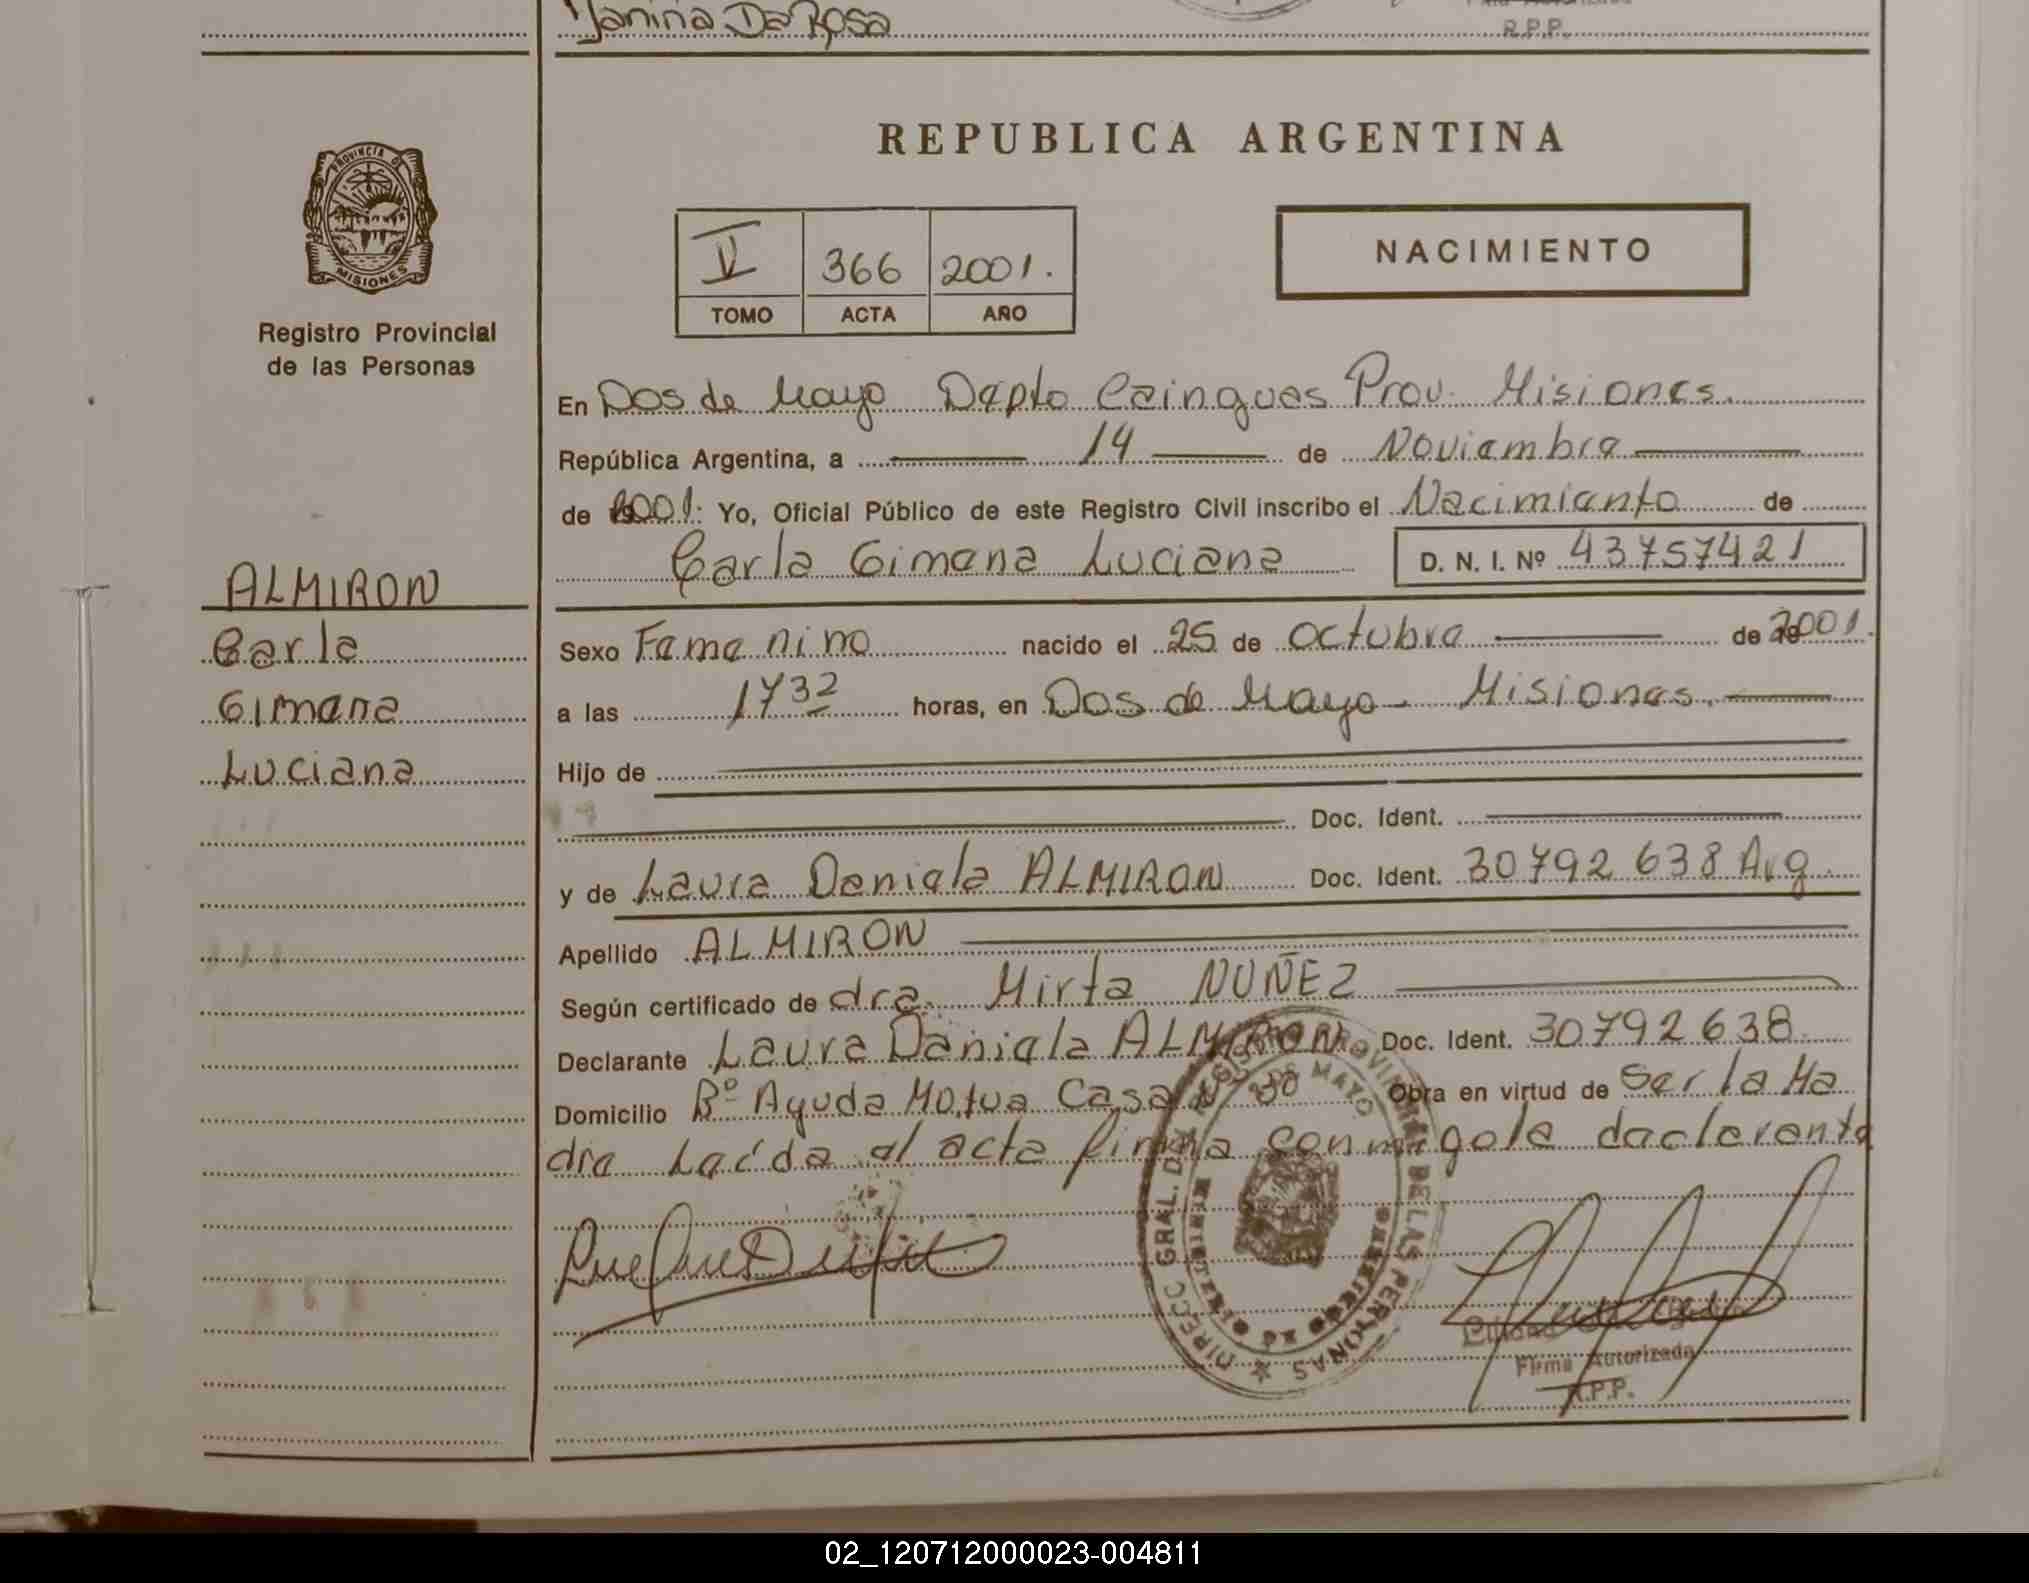 Yanina Da Rosa
R.P.P.
PROVINCIA DE
MISIONES
Registro Provincial
de las Personas
ALMIRON
Carla
Gimena
Luciana
REPUBLICA ARGENTINA
V 366 2001.
TOMO ACTA AÑO
NACIMIENTO
En Dos de Mayo Depto Cainguas Prov. Misiones.
República Argentina, a 14 de Noviembre
de 2001: Yo, Oficial Público de este Registro Civil inscribo el Nacimianto de
Carla Gimena Luciana D. N. I. Nº 43757421
Sexo Femenino nacido el 25 de octubre de 2001.
a las 1732 horas, en Dos de Mayo - Misiones.
Hijo de
Doc. Ident.
y de Laura Daniela ALMIRON Doc. Ident. 30792638 Arg.
Apellido ALMIRON
Según certificado de dra. Mirta NUÑEZ
Declarante Laura Daniela ALMIRON Doc. Ident. 30792638
Domicilio Bº Ayuda Motua Casa Nº 30 Obra en virtud de Ser la Ma
dre Leída el acta firma conmigo la declarante
DIRECC GRAL. DEL REGISTRO PROVINCIAL DE LAS PERSONAS
DOS MAYO
MISIONES
Firma Autorizada
R.P.P.
02_120712000023-004811